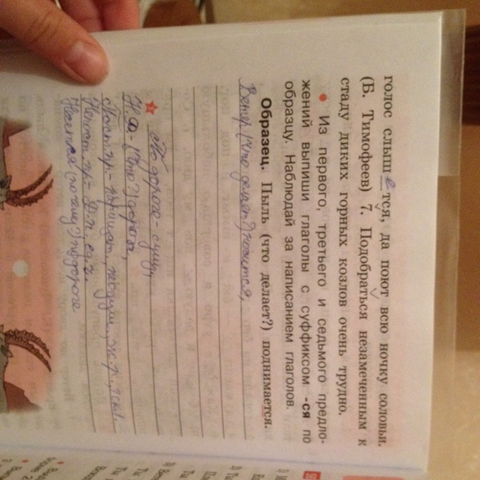 голос слыш е тся, да поют всю ночку соловьи.
(Б. Тимофеев) 7. Подобраться незамеченным к
стаду диких горных козлов очень трудно.
• Из первого, третьего и седьмого предло-
жений выпиши глаголы с суффиксом -ся по
образцу. Наблюдай за написанием глаголов.
Образец. Пыль (что делает?) поднимается.
Ветер (что делает?)
По дороге - сущ.,
Н.ф. - (что?) дорога,
Пост. пр. - нариц., неодуш., ж.р., 1 скл.
Непост. пр. - Д.п., ед.ч.